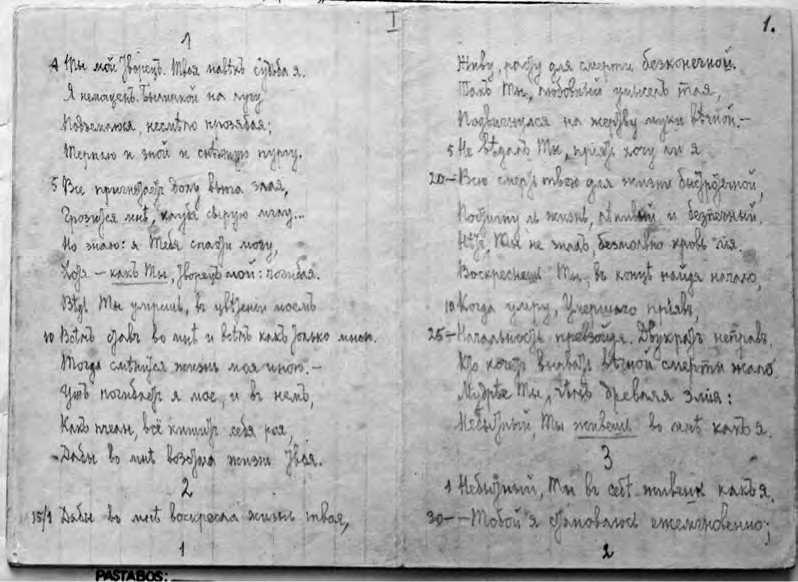 I
1.
1
Ты мой Творецъ. Твоя навѣкъ судьба я.
Я немощенъ. Былинкой на лугу
Подъемлюся несмѣло прозябая;
Терплю и зной и снѣжную пургу.
5 Все пригнетаетъ долу вьюга злая,
Грозится мнѣ, клубя сырую мглу...
Но знаю: я Тебя спасти могу,
Хотя – какъ Ты, Творецъ мой: погибая.
Вѣдь Ты умрешь, въ цвѣтеніи моемъ
10 Всѣмъ ставъ во мнѣ и всѣмъ какъ только мною.
Тогда смѣнится жизнь моя иною. –
Ужъ погибаетъ я мое, и въ немъ,
Какъ пчелы, всё кишитъ себя роя,
– Дабы во мнѣ возстала жизнь Твоя.
2
15/1 Дабы во мнѣ воскресла жизнь твоя,
1
Живу, расту для смерти безконечной.
Такъ Ты, любовный умыселъ тая,
Подвигнулся на жертву муки вѣчной. –
5 Не вѣдалъ Ты, прiять хочу ли я
20– Всю смерть твою для жизни быстротечной,
Постигну ль жизнь, лѣнивый и безпечный.
Нѣтъ, Ты не зналъ, безмолвно кровь лiя.
Воскреснешь Ты, въ концѣ найдя начало,
10 Когда умру, Умершаго прiявъ,
25– Начальность превзойдя. Двукратъ неправъ,
Кто хочетъ вырвать вѣчной смерти жало.
Мудрѣе Ты, чѣмъ древняя змiя:
Небытный, Ты живешь во мнѣ какъ я.
3
1 Небытный, Ты въ себѣ живешь какъ я.
30– – Тобой я становлюсь ежемгновенно;
2
PASTABOS: